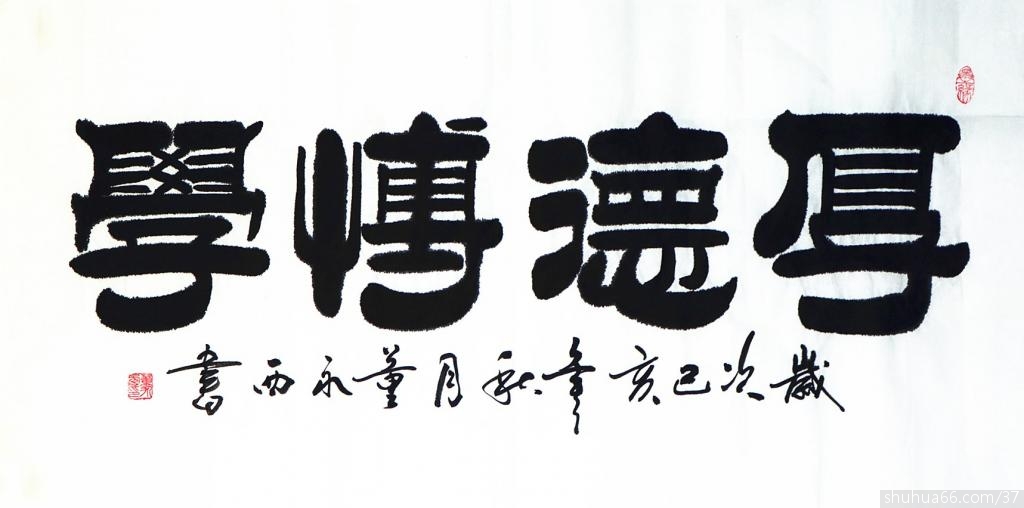 厚德博學
歲次己亥年秋月董永西書
shuhua66.com/37